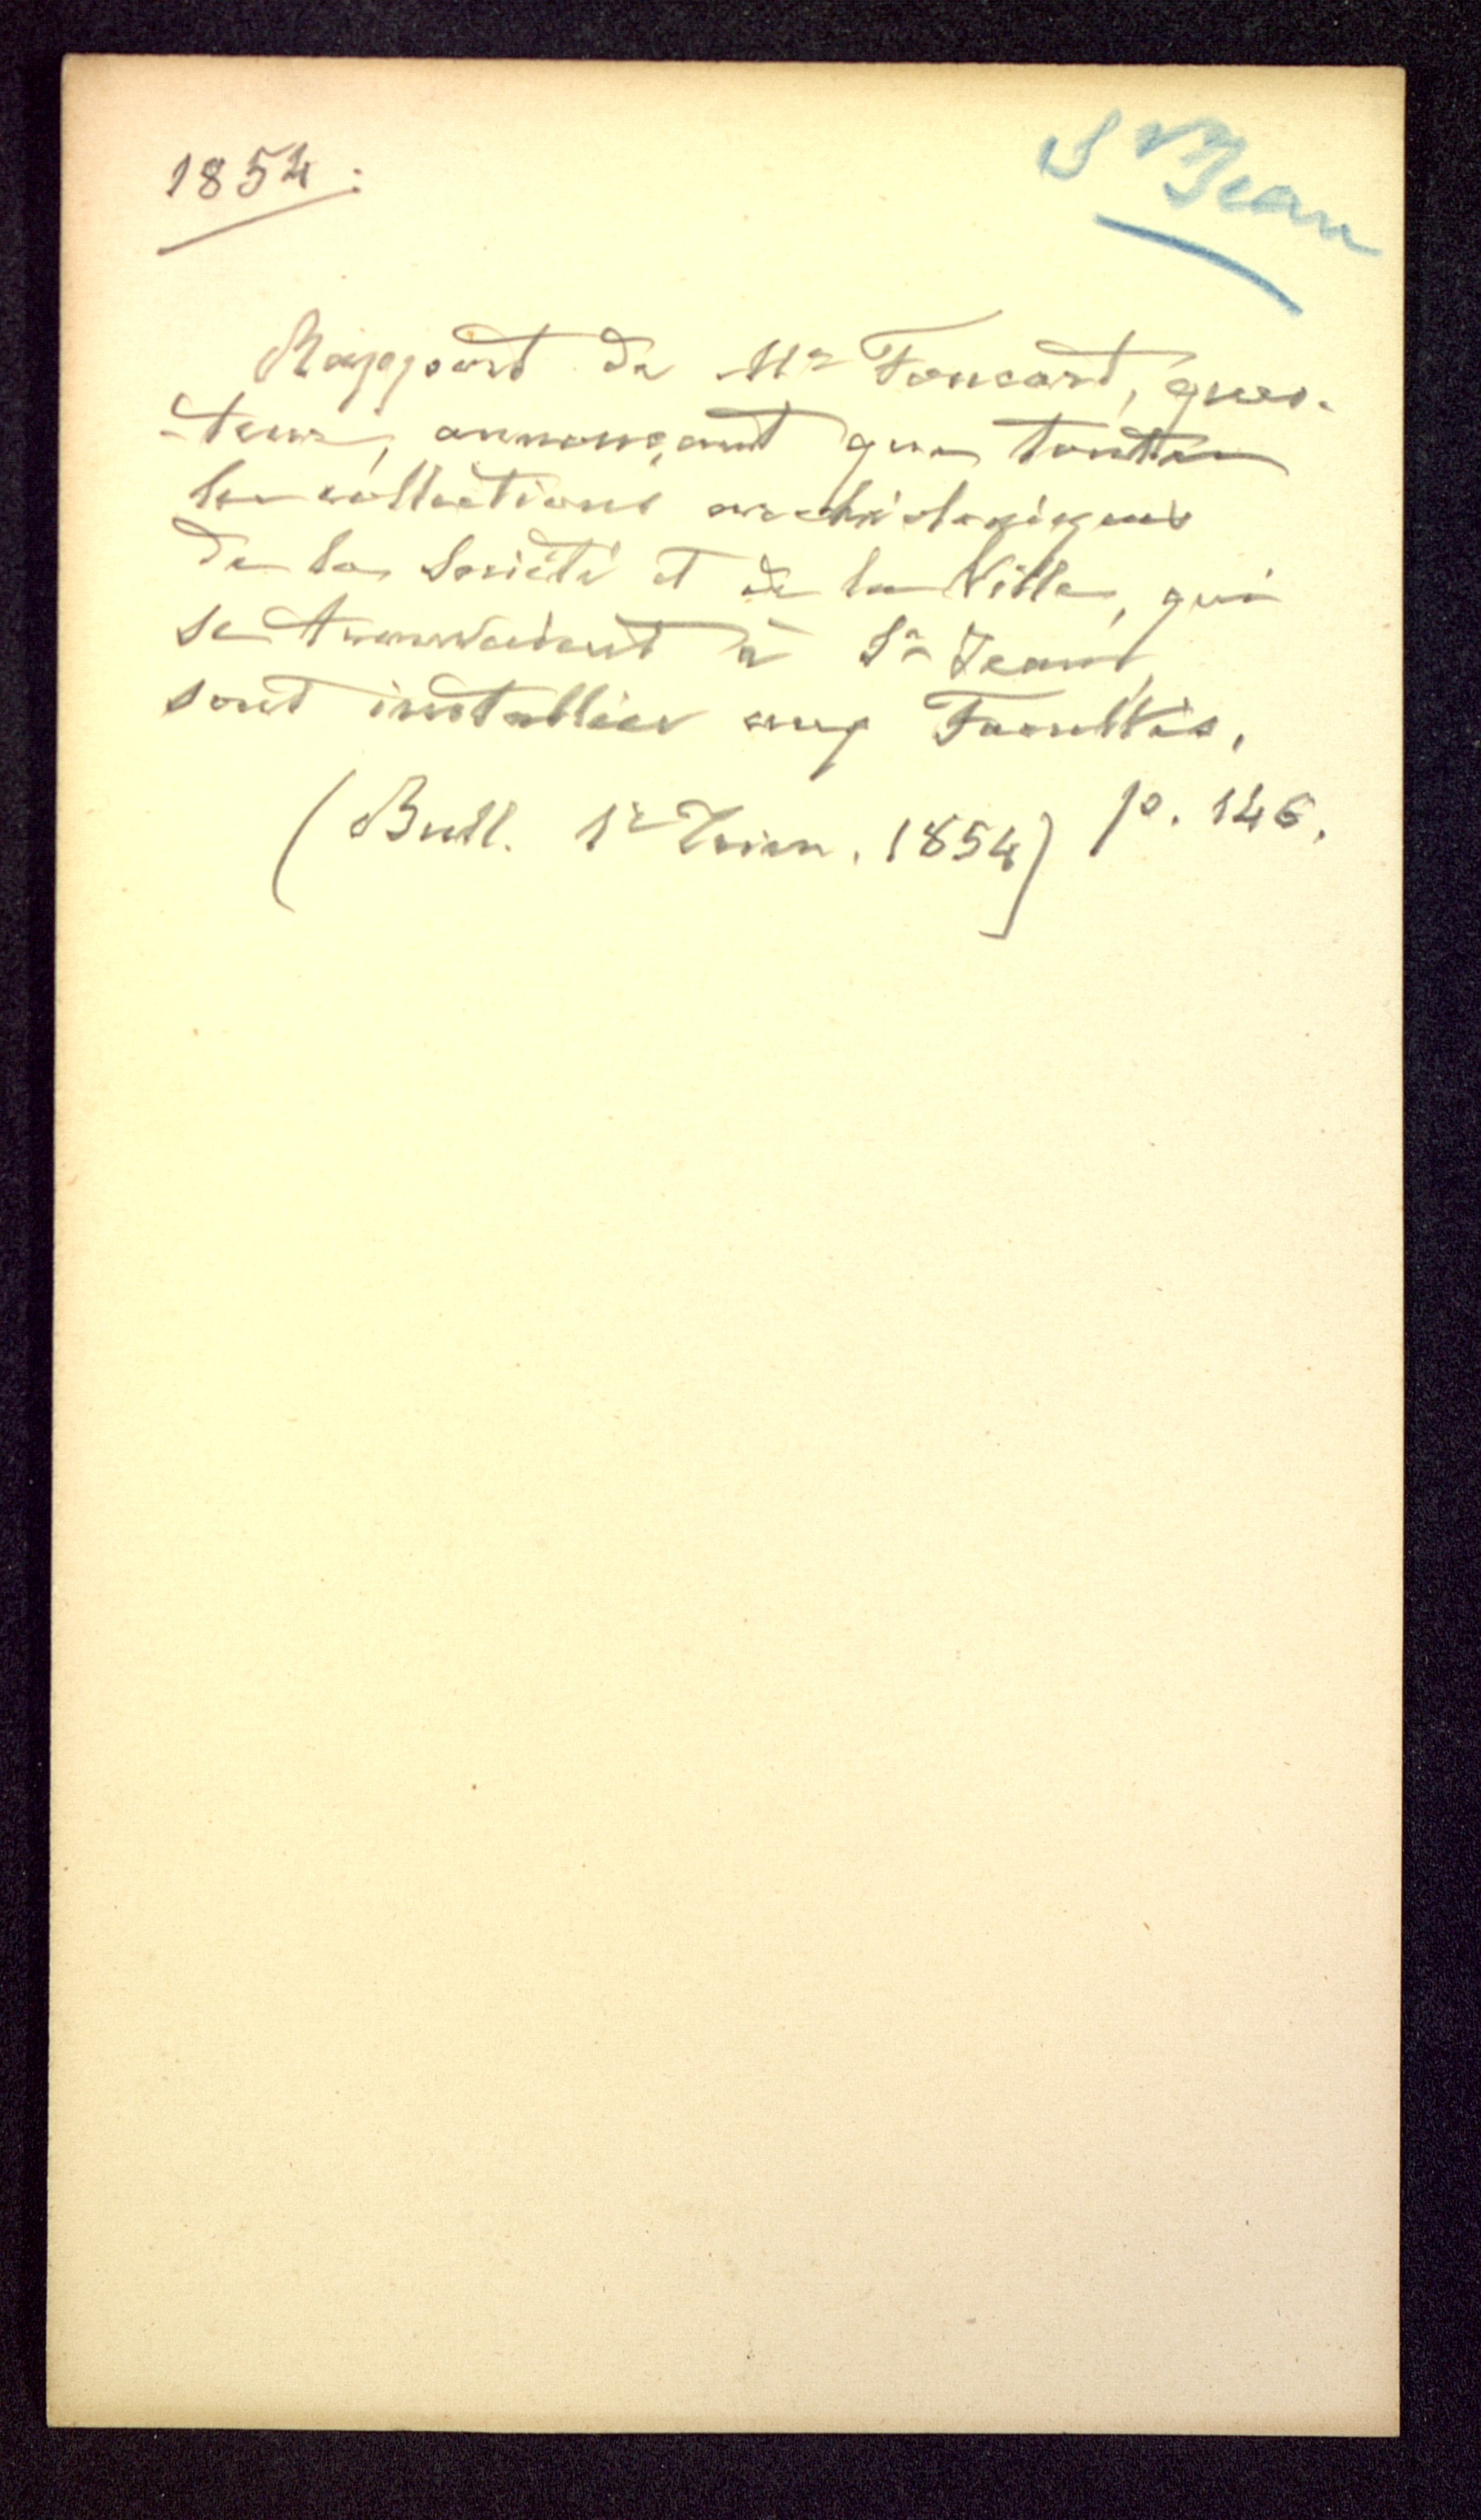 1854.
St Jean
Rapport de Mr Foucart, ques-
-teur, annonçant que toutes
les collections archéologiques
de la Société et de la Ville, qui
se trouvaient à St Jean,
sont installées aux Facultés.
(Bull. 1r Trim. 1854) p. 146.